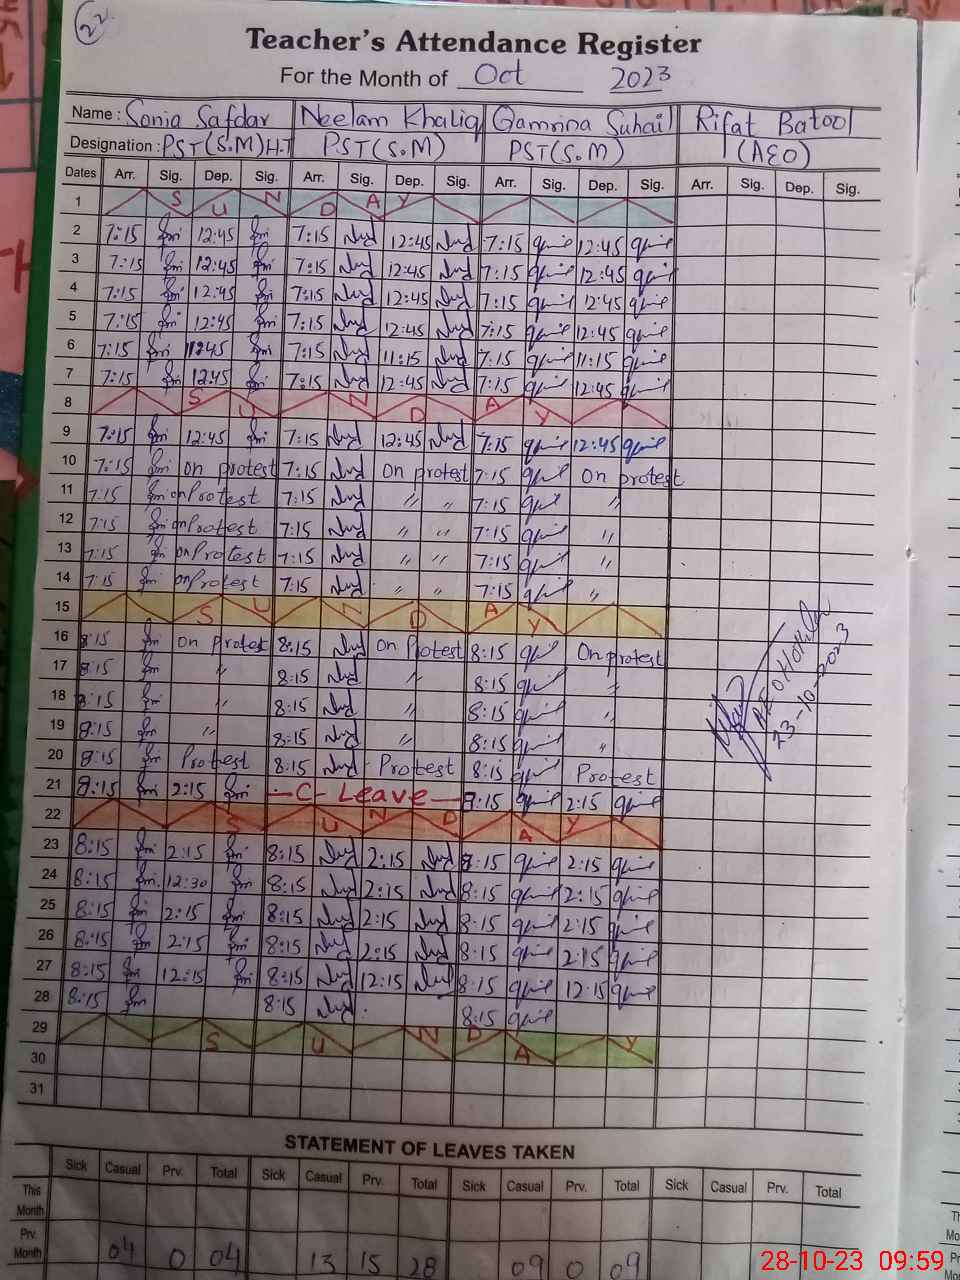 22
Teacher's Attendance Register
For the Month of Oct 2023
Name : Sonia Safdar Neelam Khaliq Qamrina Suhail Rifat Batool
Designation : PST(S.M)H.T PST(S.M) PST(S.M) (AEO)
Dates Arr. Sig. Dep. Sig. Arr. Sig. Dep. Sig. Arr. Sig. Dep. Sig. Arr. Sig. Dep. Sig.
1 S U N D A Y
2 7:15 12:45 7:15 12:45 7:15 12:45
3 7:15 12:45 7:15 12:45 7:15 12:45
4 7:15 12:45 7:15 12:45 7:15 12:45
5 7:15 12:45 7:15 12:45 7:15 12:45
6 7:15 7:15 11:15 7:15 11:15
7 7:15 12:45 7:15 12:45 7:15 12:45
8 S U N D A Y
9 7:15 12:45 7:15 12:45 7:15 12:45
10 7:15 on protest 7:15 On protest 7:15 On protest
11 7:15 on Protest 7:15 " " 7:15 "
12 7:15 on Protest 7:15 " " 7:15 "
13 7:15 on Protest 7:15 " " 7:15 "
14 7:15 on Protest 7:15 " " 7:15 "
15 S U N D A Y
16 8:15 On protest 8:15 On Protest 8:15 On protest
17 8:15 " 8:15 " 8:15 "
18 8:15 " 8:15 " 8:15 "
19 8:15 " 8:15 " 8:15 "
20 8:15 Protest 8:15 Protest 8:15 Protest
21 8:15 2:15 - C - Leave - 8:15 2:15
22 S U N D A Y
23 8:15 2:15 8:15 2:15 8:15 2:15
24 8:15 12:30 8:15 2:15 8:15 2:15
25 8:15 2:15 8:15 2:15 8:15 2:15
26 8:15 2:15 8:15 2:15 8:15 2:15
27 8:15 12:15 8:15 12:15 8:15 12:15
28 8:15 8:15 8:15
29 S U N D A Y
30
31
23-10-2023
STATEMENT OF LEAVES TAKEN
Sick Casual Prv. Total Sick Casual Prv. Total Sick Casual Prv. Total Sick Casual Prv. Total
This Month
Prv. Month 04 0 04 13 15 28 09 0 09
28-10-23 09:59